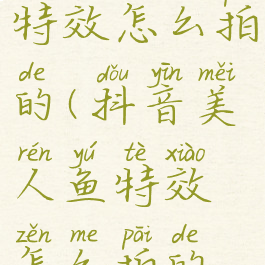 特效怎么拍
de dǒu yīn měi
的(抖音美
rén yú tè xiào
人鱼特效
zěn me pāi de
怎么拍的